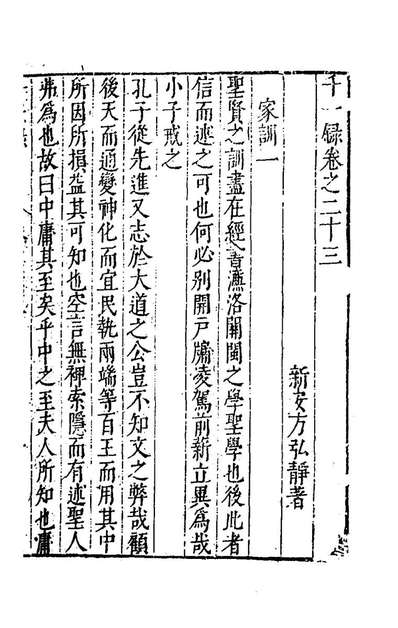 千一録卷之二十三
新安方弘靜著
家訓一
聖賢之訓盡在經書濂洛關閩之學聖學也後此者
信而述之可也何必別開戶牖凌駕前新立異為哉
小子戒之
孔子從先進又志於大道之公豈不知文之弊哉顧
後天而適變神化而宜民執兩端等百王而用其中
所因所損益其可知也空言無裨索隱而有述聖人
弗為也故曰中庸其至矣乎中之至夫人所知也庸